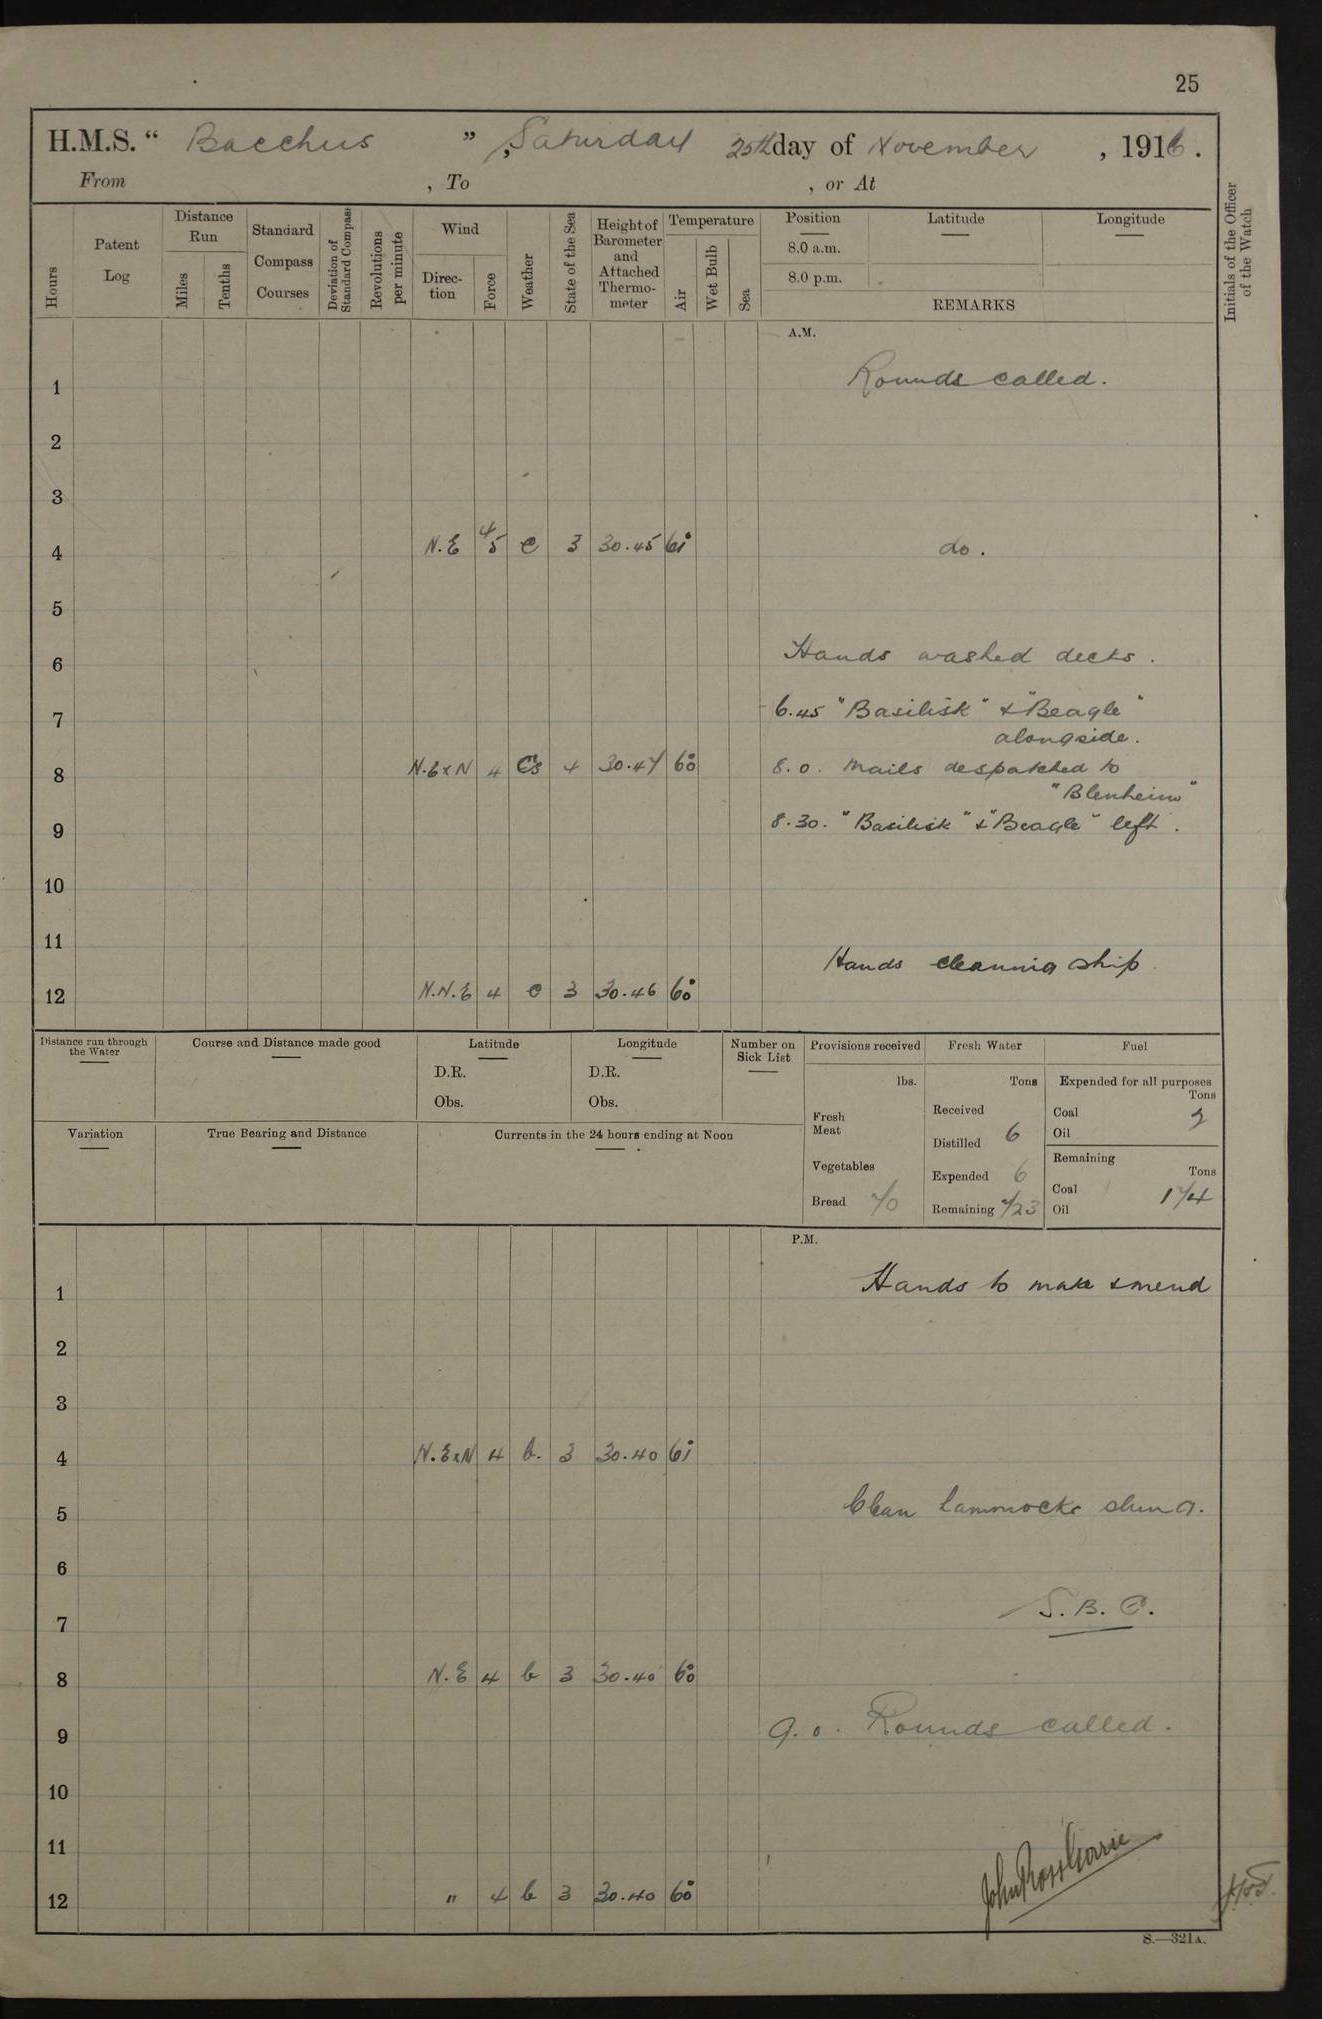 25
H.M.S. “ Bacchus ” , Saturday 25th day of November , 1916.
From , To , or At
Hours
Patent Log
Distance Run
Miles
Tenths
Standard Compass Courses
Deviation of Standard Compass
Revolutions per minute
Wind
Direc-tion
Force
Weather
State of the Sea
Height of Barometer and Attached Thermo-meter
Temperature
Air
Wet Bulb
Sea
Position
Latitude
Longitude
8.0 a.m.
8.0 p.m.
REMARKS
Initials of the Officer of the Watch
A.M.
1 Rounds called.
2
3
4 N.E 4/5 c 3 30.45 61° do.
5
6 Hands washed decks.
7 6.45 "Basilisk" & "Beagle"
alongside.
8 N.E x N 4 4 30.47 60° 8.0. Mails despatched to
"Blenheim"
9 8.30. "Basilisk" & "Beagle" left.
10
11
Hands cleaning ship
12 N.N.E 4 c 3 30.46 60°
Distance run through the Water
Course and Distance made good
Latitude
D.R.
Obs.
Longitude
D.R.
Obs.
Number on Sick List
Provisions received
lbs.
Fresh Meat
Vegetables
Bread
Fresh Water
Tons
Received
Distilled 6
Expended 6
Remaining
Fuel
Expended for all purposes
Tons
Coal 2
Oil
Remaining
Tons
Coal
Oil
Variation
True Bearing and Distance
Currents in the 24 hours ending at Noon
P.M.
1 Hands to make & mend
2
3
4 N.E x N 4 b. 3 30.40 61°
5 Clean hammocks slung.
6
7 S.B.C.
8 N.E 4 b 3 30.40 60°
9 9.0. Rounds called.
10
11
12 " 4 b 3 30.40 60°
S.—321A.